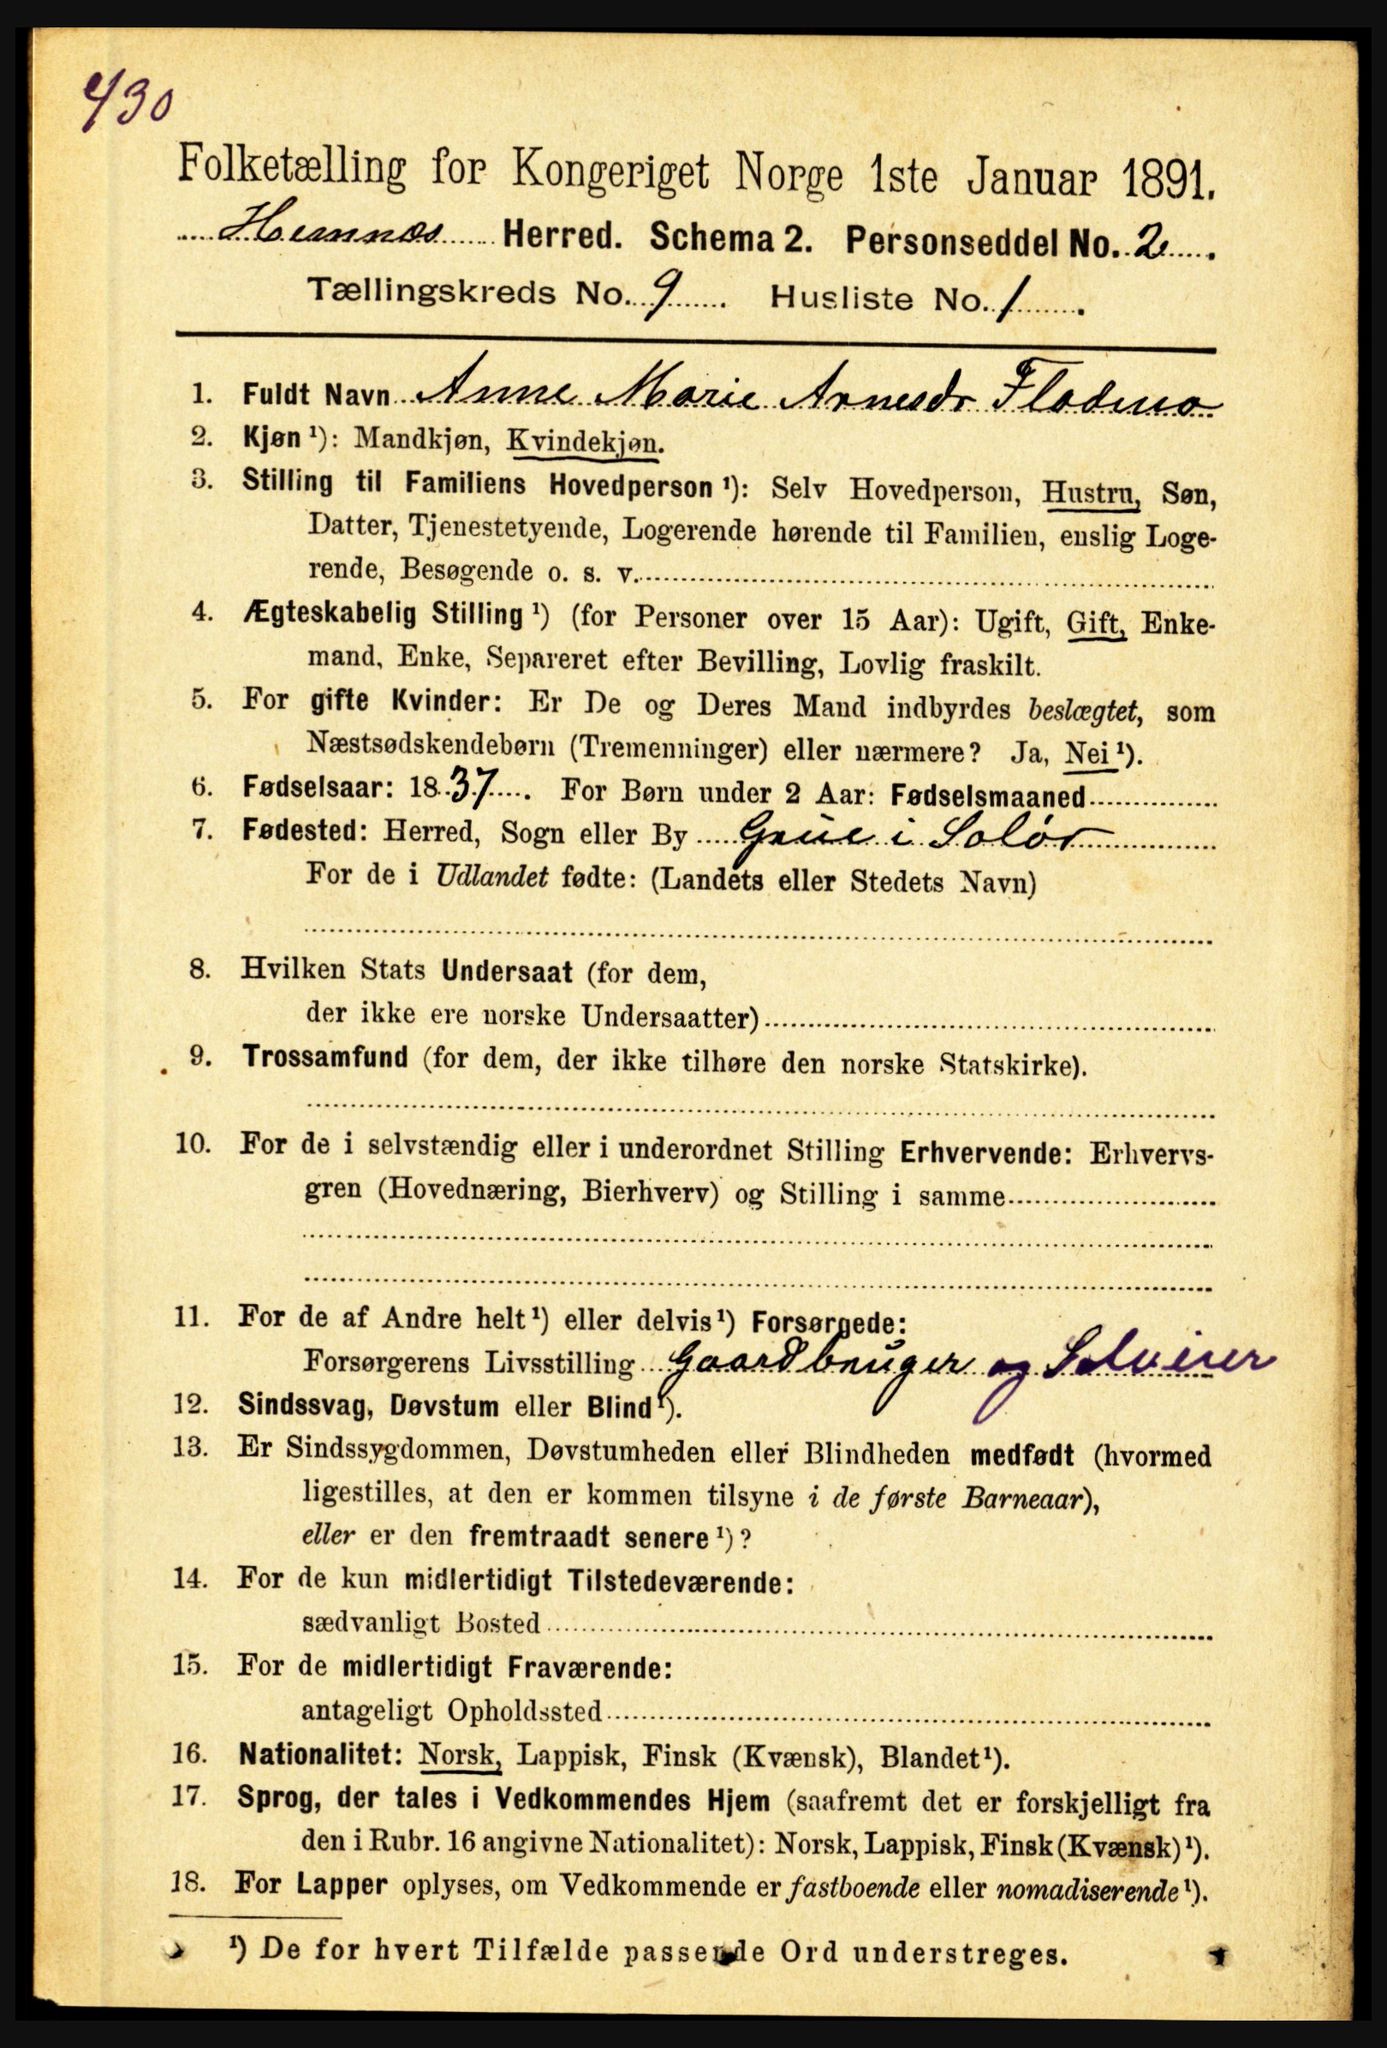 430
Folketælling for Kongeriget Norge 1ste Januar 1891.
Hemnæs Herred. Schema 2. Personseddel No. 2.
Tællingskreds No. 9. Husliste No. 1.
1. Fuldt Navn Anne Marie Arnesdr Flodmo
2. Kjøn ¹): Mandkjøn, Kvindekjøn.
3. Stilling til Familiens Hovedperson ¹): Selv Hovedperson, Hustru, Søn,
Datter, Tjenestetyende, Logerende hørende til Familien, enslig Loge-
rende, Besøgende o. s. v.
4. Ægteskabelig Stilling ¹) (for Personer over 15 Aar): Ugift, Gift, Enke-
mand, Enke, Separeret efter Bevilling, Lovlig fraskilt.
5. For gifte Kvinder: Er De og Deres Mand indbyrdes beslægtet, som
Næstsødskendebørn (Tremenninger) eller nærmere? Ja, Nei ¹).
6. Fødselsaar: 1837. For Børn under 2 Aar: Fødselsmaaned
7. Fødested: Herred, Sogn eller By Grue i Solør
For de i Udlandet fødte: (Landets eller Stedets Navn)
8. Hvilken Stats Undersaat (for dem,
der ikke ere norske Undersaatter)
9. Trossamfund (for dem, der ikke tilhøre den norske Statskirke).
10. For de i selvstændig eller i underordnet Stilling Erhvervende: Erhvervs-
gren (Hovednæring, Bierhverv) og Stilling i samme
11. For de af Andre helt ¹) eller delvis ¹) Forsørgede:
Forsørgerens Livsstilling Gaardbruger og Selveier
12. Sindssvag, Døvstum eller Blind ¹).
13. Er Sindssygdommen, Døvstumheden eller Blindheden medfødt (hvormed
ligestilles, at den er kommen tilsyne i de første Barneaar),
eller er den fremtraadt senere ¹)?
14. For de kun midlertidigt Tilstedeværende:
sædvanligt Bosted
15. For de midlertidigt Fraværende:
antageligt Opholdssted
16. Nationalitet: Norsk, Lappisk, Finsk (Kvænsk), Blandet ¹).
17. Sprog, der tales i Vedkommendes Hjem (saafremt det er forskjelligt fra
den i Rubr. 16 angivne Nationalitet): Norsk, Lappisk, Finsk (Kvænsk) ¹).
18. For Lapper oplyses, om Vedkommende er fastboende eller nomadiserende ¹).
¹) De for hvert Tilfælde passende Ord understreges.